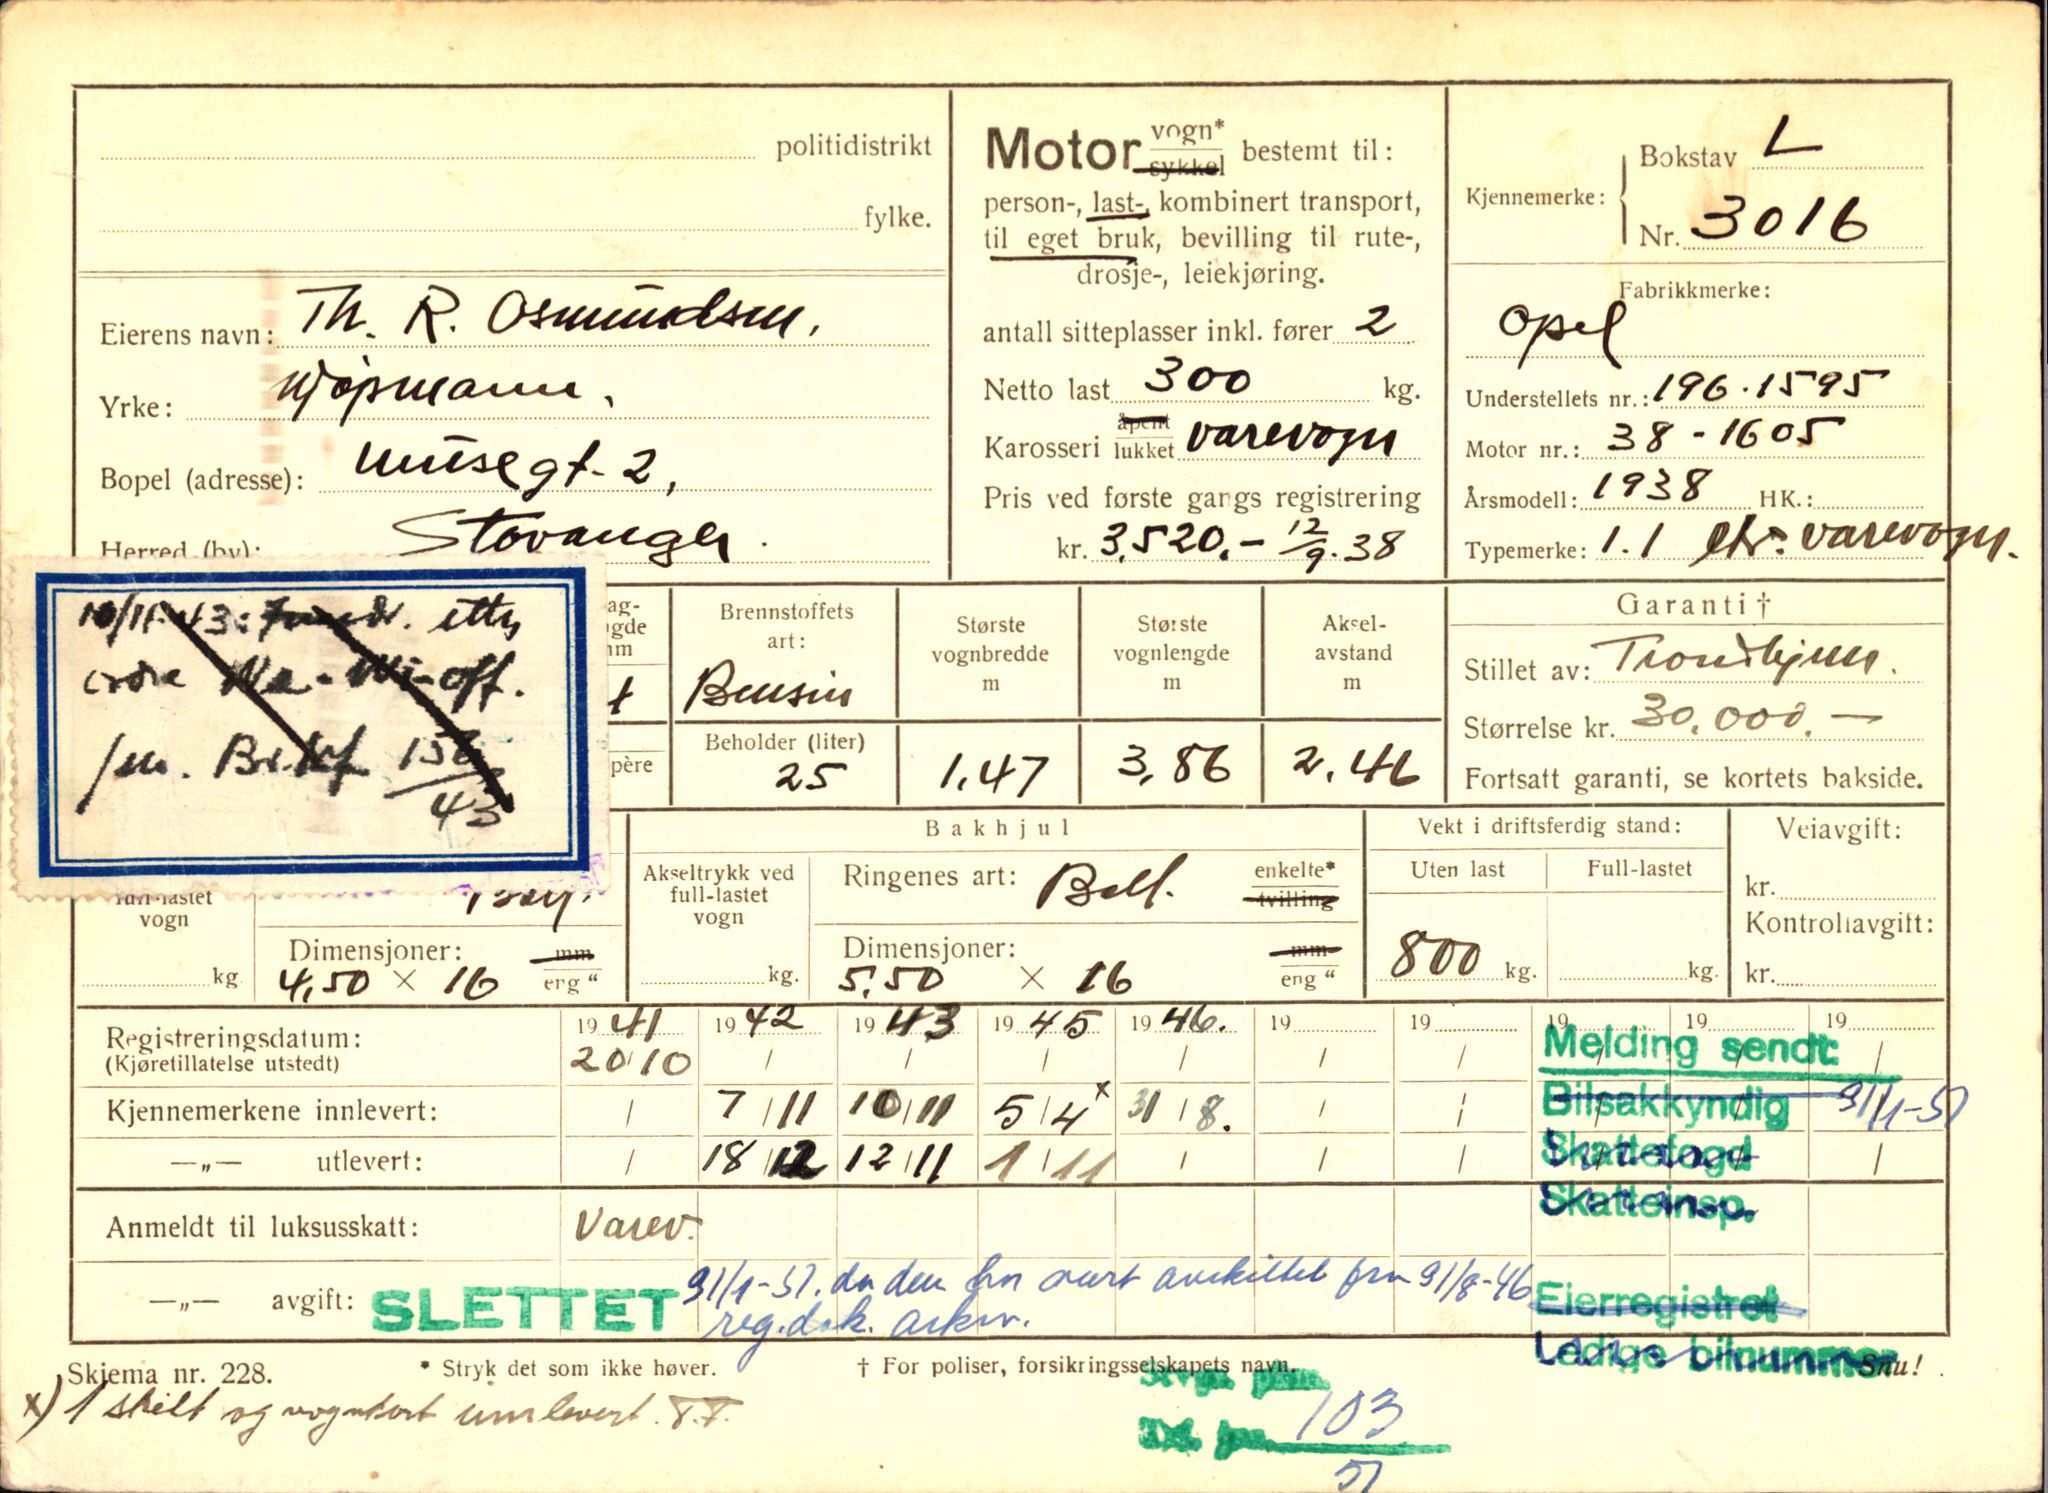 politidistrikt
fylke.
Eierens navn: Th. R. Osmundsen,
Yrke: kjøpmann,
Bopel (adresse): Musegt- 2,
Herred (by): Stavanger.
Motor vogn* sykkel bestemt til:
person-, last-, kombinert transport,
til eget bruk, bevilling til rute-,
drosje-, leiekjøring.
antall sitteplasser inkl. fører 2
Netto last 300 kg.
Karosseri åpent lukket varevogn
Pris ved første gangs registrering
kr. 3.520.- 12/9.38
Kjennemerke: Bokstav L
Nr. 3016
Fabrikkmerke:
Opel
Understellets nr.: 196.1595
Motor nr.: 38-1605
Årsmodell: 1938 HK.:
Typemerke: 1.1 ltr. varevogn.
10/11.43: etter
ordre Wa-Wi-off.
jnr. 158/43
Brennstoffets art:
Bensin
Beholder (liter)
25
Største vognbredde m
1,47
Største vognlengde m
3,86
Aksel-avstand m
2.46
Garanti †
Stillet av: Trondhjem.
Størrelse kr. 30.000.-
Fortsatt garanti, se kortets bakside.
full-lastet
vogn
kg.
Dimensjoner: mm
4,50 × 16 eng "
Bakhjul
Akseltrykk ved
full-lastet
vogn
kg.
Ringenes art: Ball. enkelte* tvilling
Dimensjoner: mm
5,50 × 16 eng "
Vekt i driftsferdig stand:
Uten last Full-lastet
800 kg. kg.
Veiavgift:
kr.
Kontrollavgift:
kr.
Registreringsdatum: 1941 1942 1943 1945 1946. 19 19 19 19 19
(Kjøretillatelse utstedt) 20/10 / / / / / / / / /
Kjennemerkene innlevert: / 7/11 10/11 5/4 x 31/8. / /
—„— utlevert: / 18/12 12/11 1/11 / / / /
Melding sendt:
Bilsakkyndig 31/1-51
Skattefogd
Skatteinsp.
Eierregistret
Ledige bilnummer
Anmeldt til luksusskatt: Varev.
—„— avgift: SLETTET 31/1-51. da den har vært avskiltet fra 31/8-46
reg.dok. arkiv.
Skjema nr. 228. * Stryk det som ikke høver. † For poliser, forsikringsselskapets navn. Snu!
x) 1 skilt og vognkort innlevert. T.T.
103
51